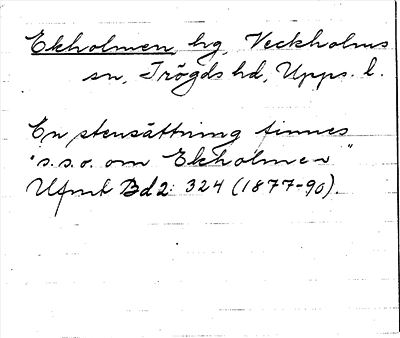 Ekholmen, hg, Veckholms
sn, Trögds hd, Upps. l.
En stensättning finnes
"s.s.o. om Ekholmen"
Ufmt Bd 2: 324 (1877-90).